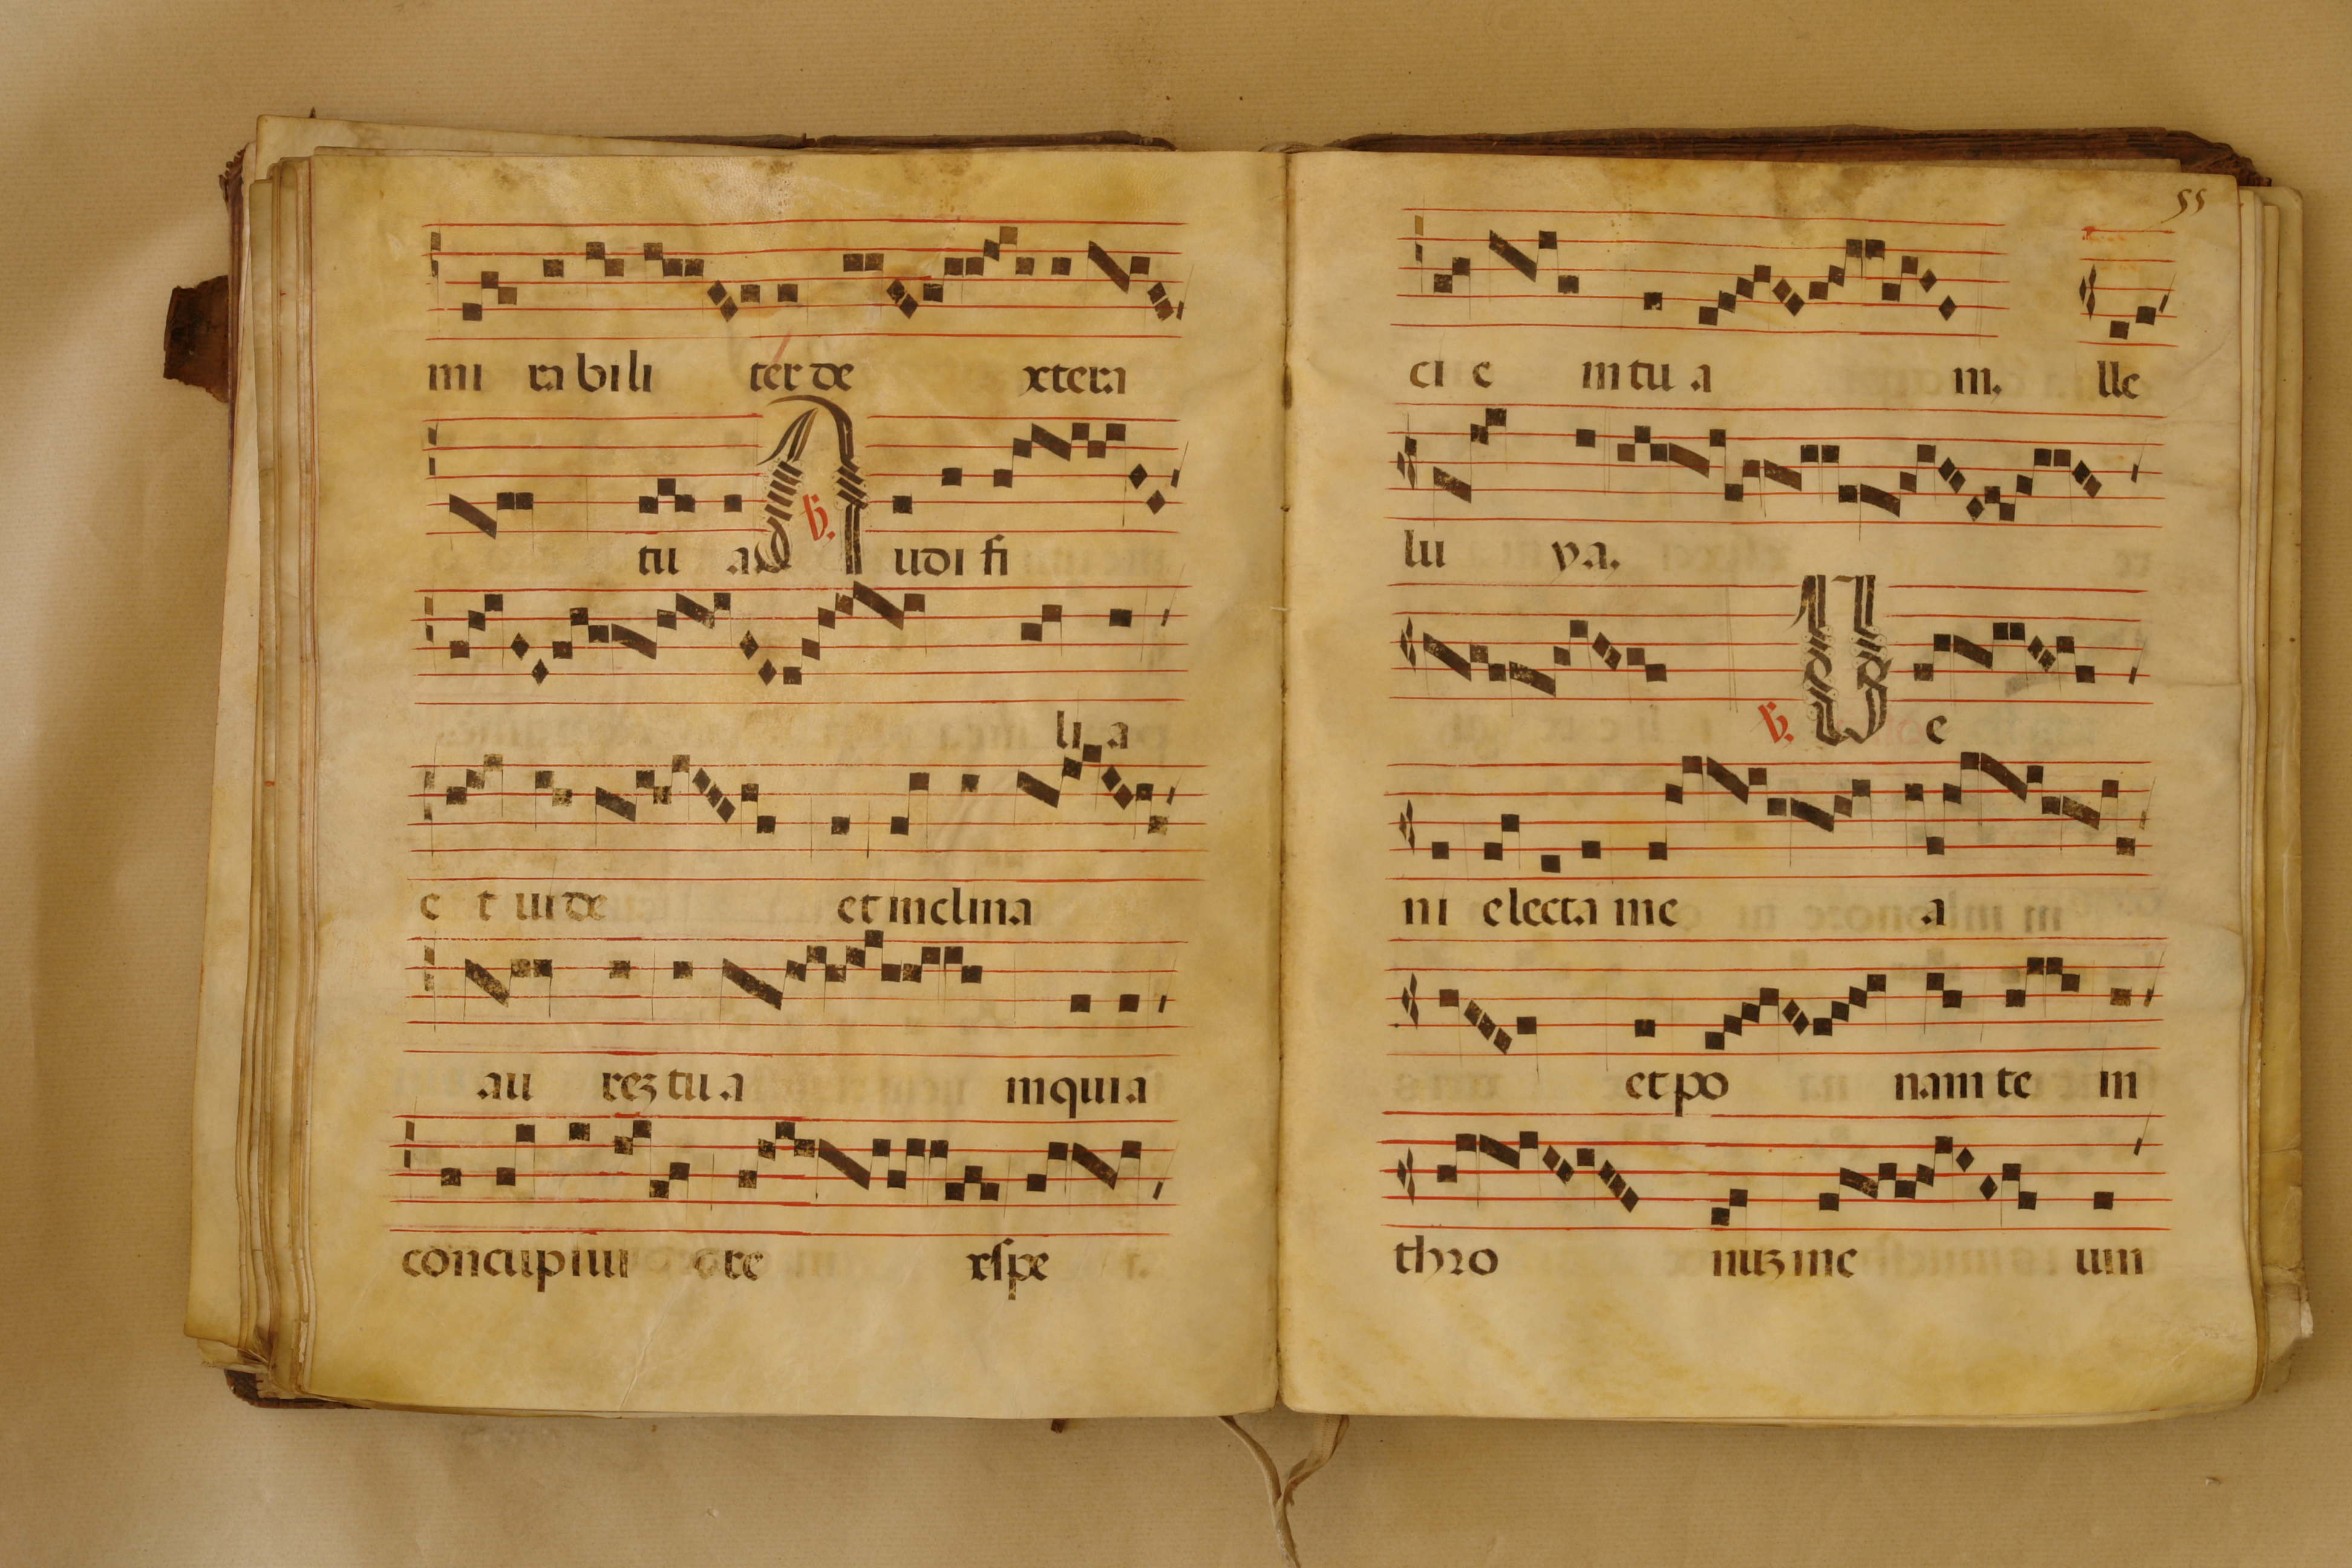 mi ra bi li ter de xtera
tu a ℣. Audi fi
li a
e t uide et inclina
au rez tu a m quia
concupiui ore xſpe
55
ci e m tu a m. lle
lu ya.
℣. Ue
ni electa me a
et po nam te in
thro nuz me um